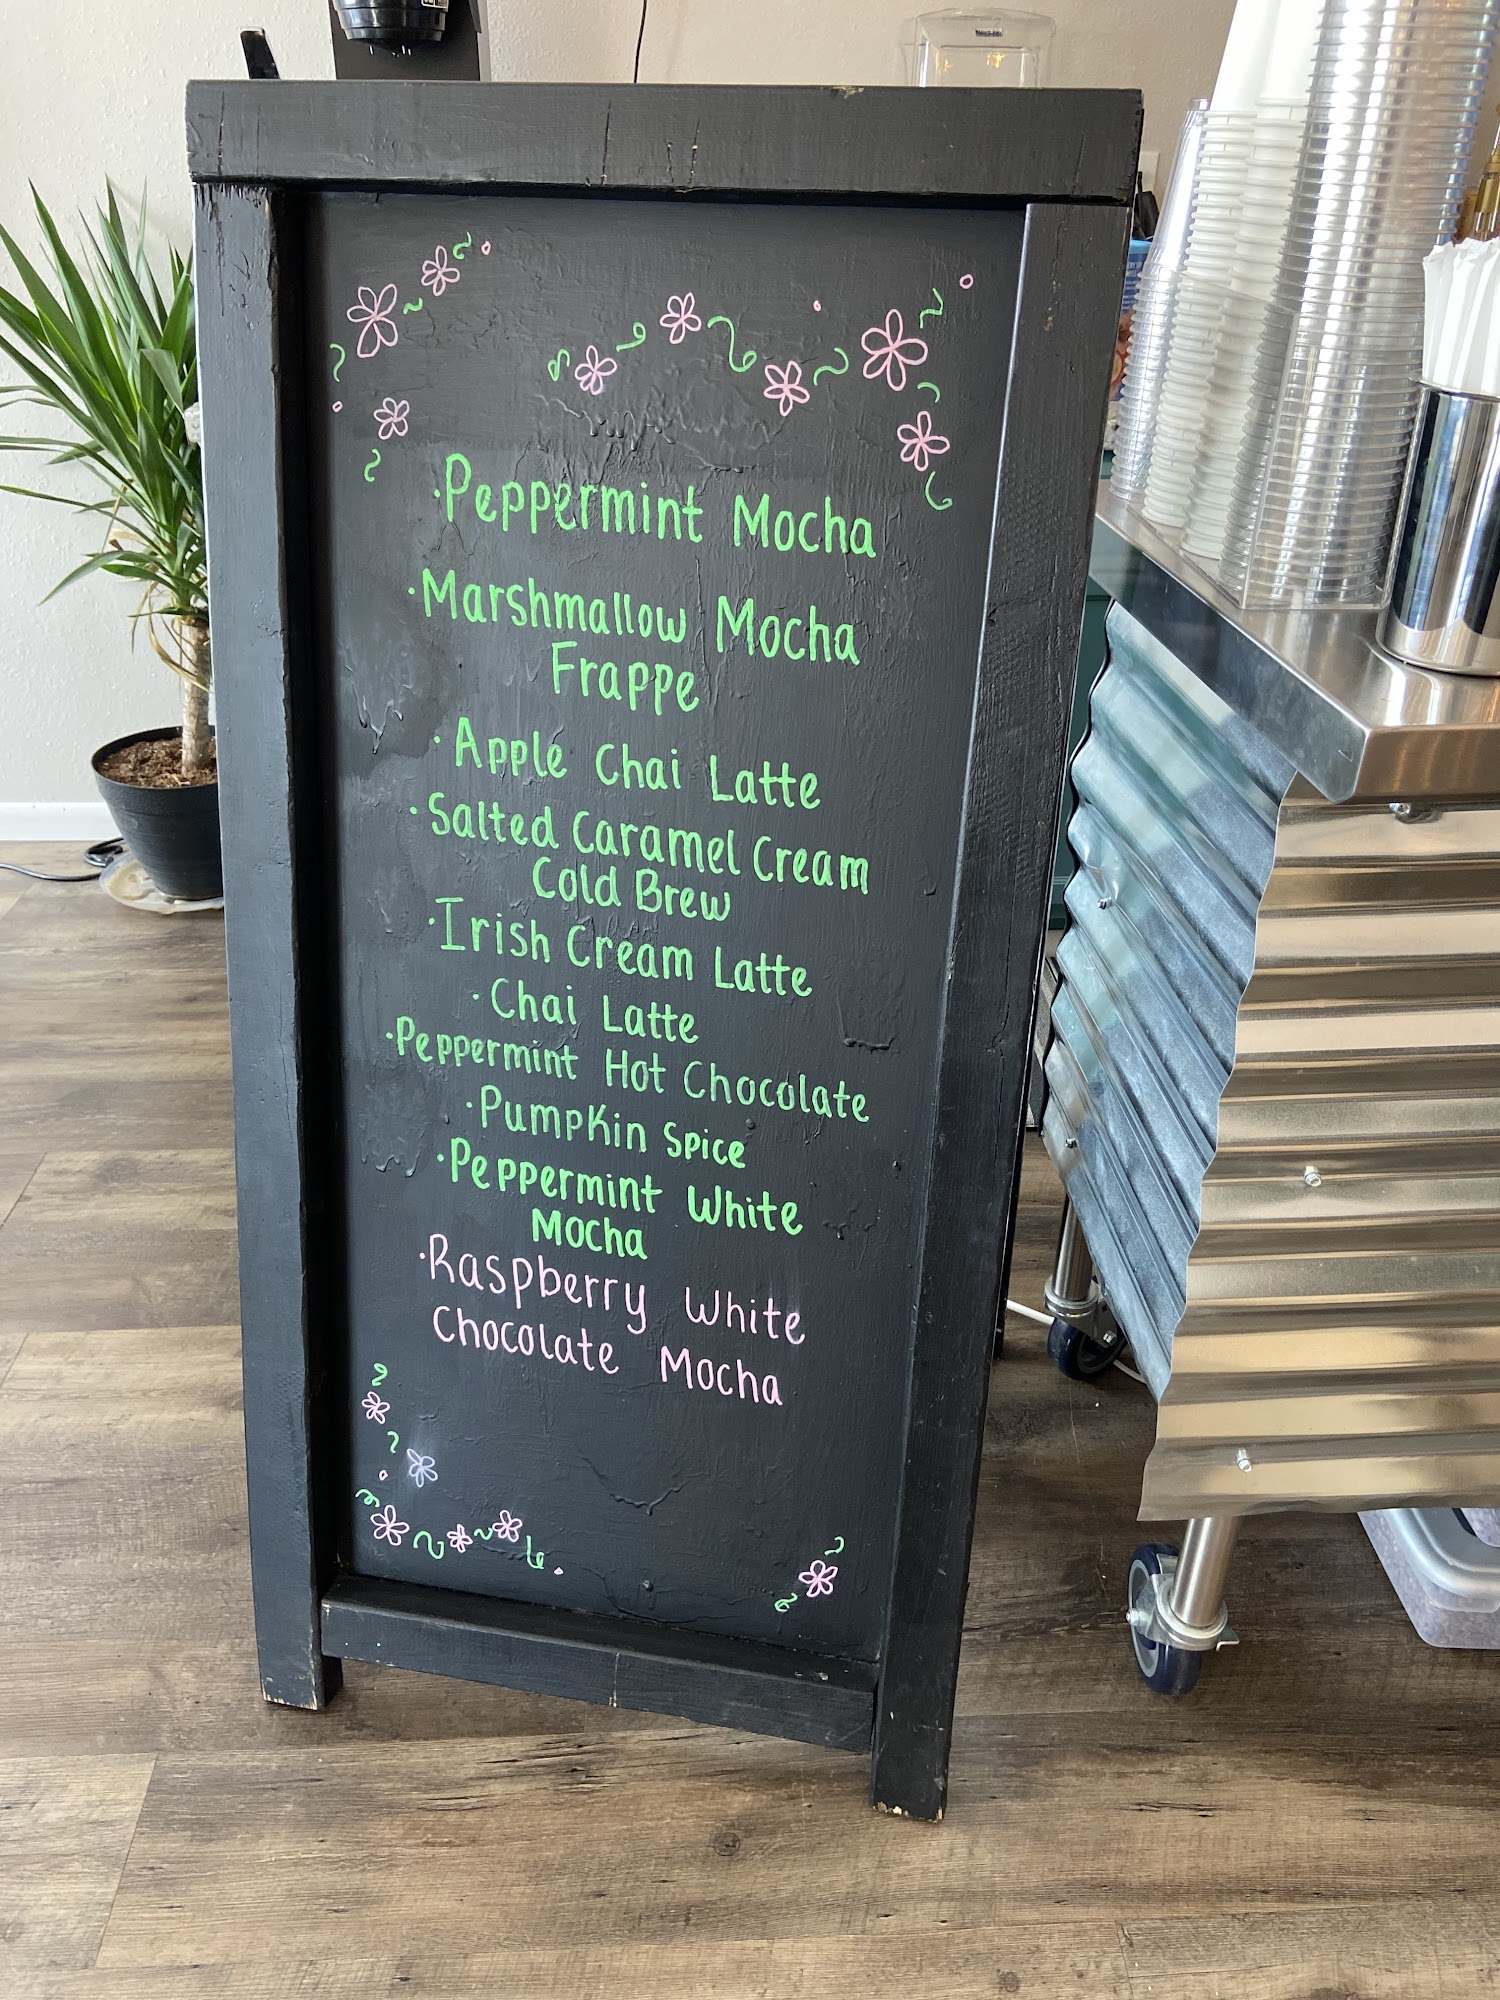 ·Peppermint Mocha
·Marshmallow Mocha
Frappe
·Apple Chai Latte
·Salted Caramel Cream
Cold Brew
·Irish Cream Latte
·Chai Latte
·Peppermint Hot Chocolate
·Pumpkin Spice
·Peppermint White
Mocha
·Raspberry White
Chocolate Mocha